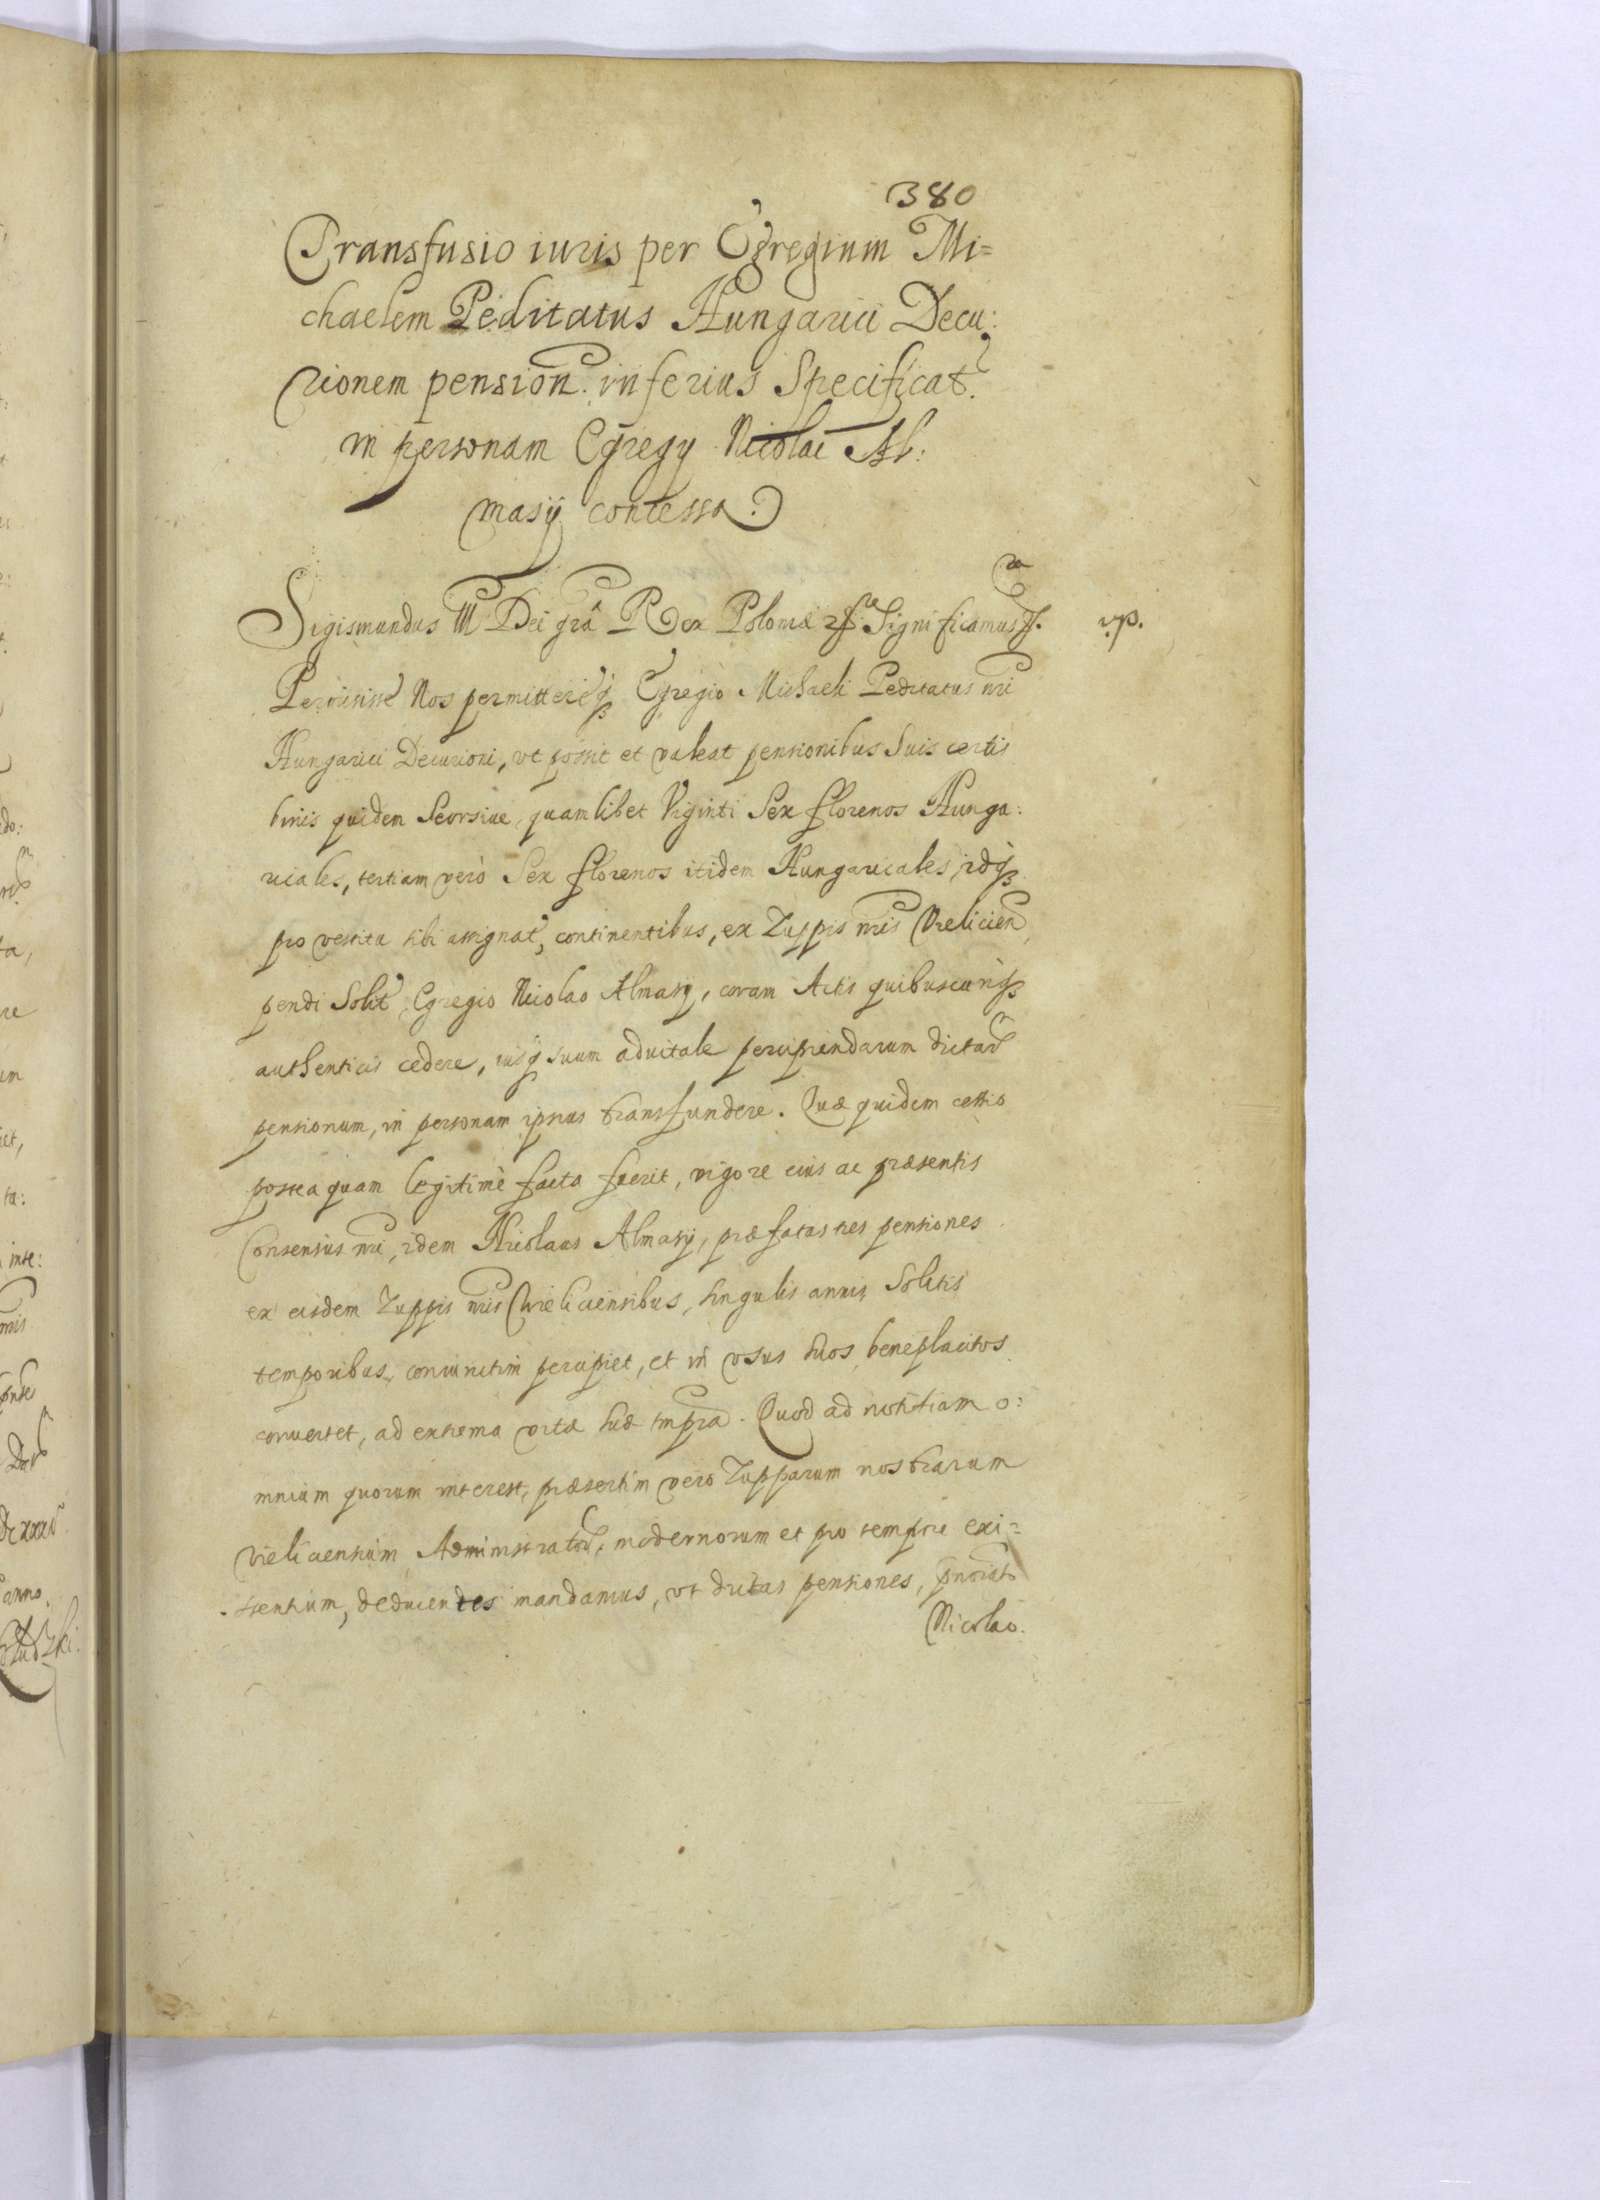 380
Transfusio iuris per Egregium Mi=
chaelem Peditatus Hungarici Decu:
rionem pension. inferius Specificat.
in personam Egregy Nicolai Al:
masÿ concessa.
Sigismundus III Dei grâ Rex Poloniæ Significamus
Permisisse Nos permittereq Egregio Michaeli Peditatus nri
Hungarici Decurioni, vt possit et valeat pensionibus Suis certis
binis quidem Seorsiue, quamlibet Viginti Sex florenos Hunga:
ricales, tertiam verò Sex florenos itidem Hungaricales, idq
pro vestitu sibi assignat, continentibus, ex Zuppis nris Vielicien
pendi Solit, Egregio Nicolao Almasÿ, coram Actis quibuscunq
authenticis cedere, iusq suum aduitale percipiendarum dictar
pensionum, in personam ipsius transfundere. Quæ quidem cessio
posteaquam legitimè facta fuerit, vigore eius ac præsentis
Consensus nri, idem Nicolaus Almasÿ, præfatas tres pensiones
ex eisdem Zuppis nris Vieliciensibus, singulis annis Solitis
temporibus, coniunctim percipiet, et in vsus suos beneplacitos
conuertet, ad extrema vitæ suæ tmpra. Quod ad notitiam o:
mnium quorum interest, præsertim vero Zupparum nostrarum
Vieliciensium Administrator, modernorum et pro tempre exi=
stentium, deducentes mandamus, vt dictas pensiones, pnoiato
Nicolao.